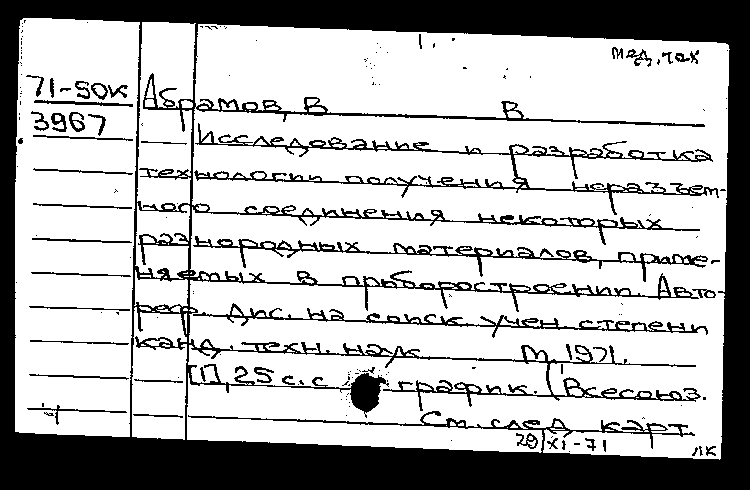 мед, тех
71-50к Абрамов, В В
3967
Исследование и разработка
технологии получения неразъем-
ного соединения некоторых
разнородных материалов, приме-
няемых в приборостроении. Авто-
реф. дис. на соиск. учен. степени
канд. техн. наук М., 1971.
[1], 25 с. с график. (Всесоюз.
См. след. карт.
29/XI-71 лк